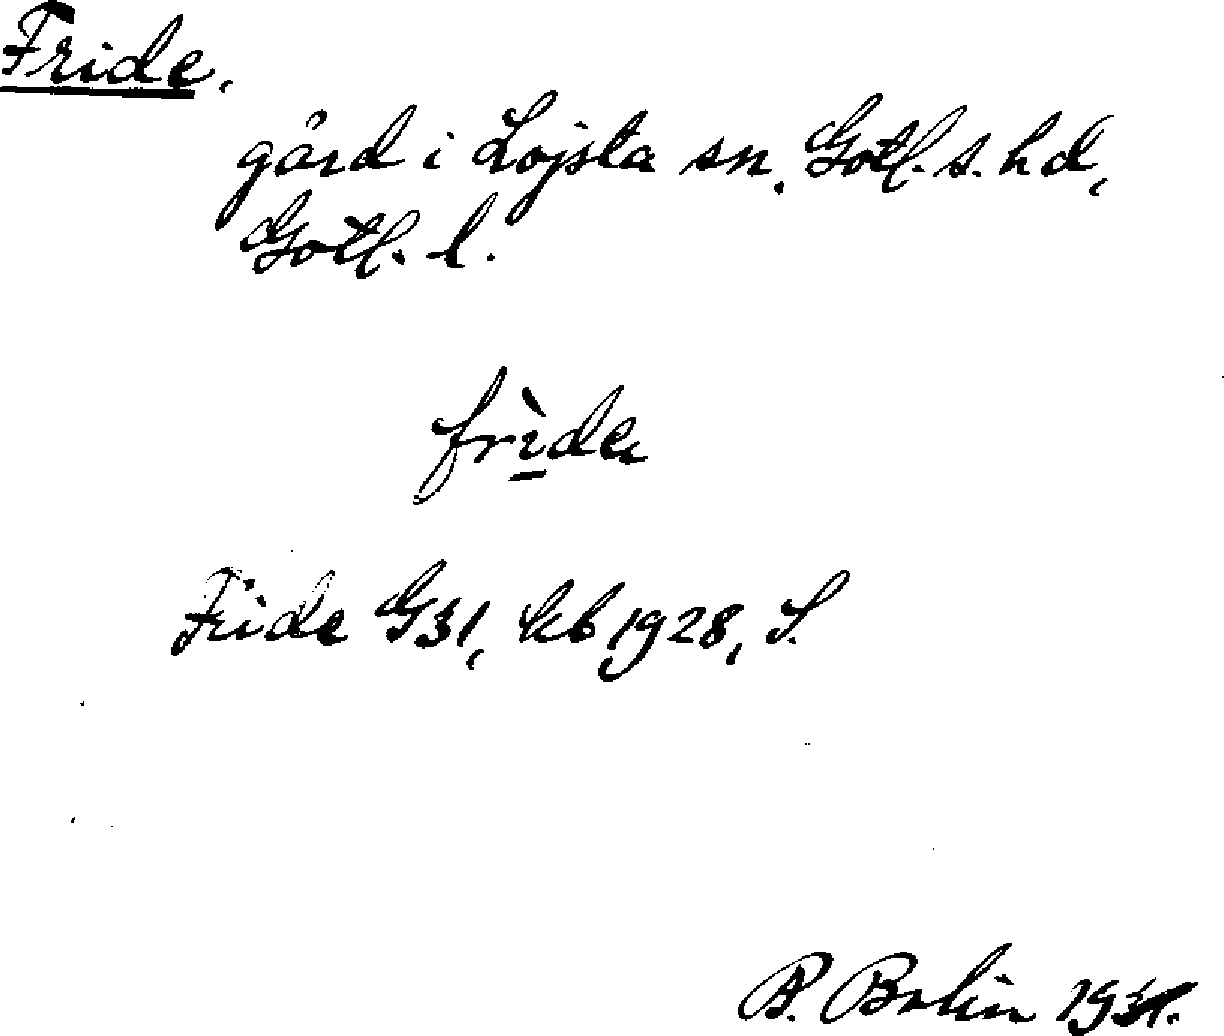 Fride.
gård i Lojsta sn, Gotl. s. hd,
Gotl. l.
frìde
Fride G31, kb 1928, S.
B. Bolin 1931.